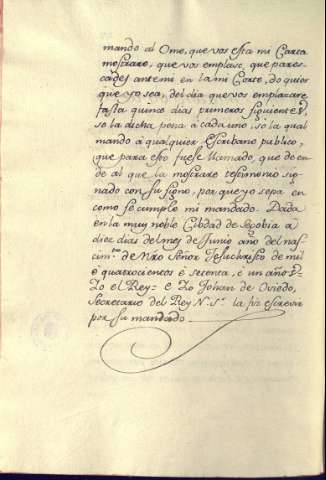 mando al Ome, que vos esta mi Carta
mostrare, que vos emplase, que pares-
cades antemi en la mi Corte, do quier
que yo sea, del dia que vos emplazare
fasta quince dias primeros siguientes,
so la dicha pena à cada uno, so la qual
mando à qualquier Escribano publico,
que para esto fuese llamado, que de en-
de al que la mostrare testimonio sig-
nado con su signo, por que yo sepa en
como se cumple mi mandado. Dada
en la muy noble Cibdad de Segobia a
diez dias del mes de Junio año del nas-
cim.to de Nro Señor Jesuchristo de mil
è quatrocientos è setenta, è un años.
Yo el Rey = E Yo Johan de Oviedo,
Secretario del Rey N. S.r la fiz escrevir
por su mandado